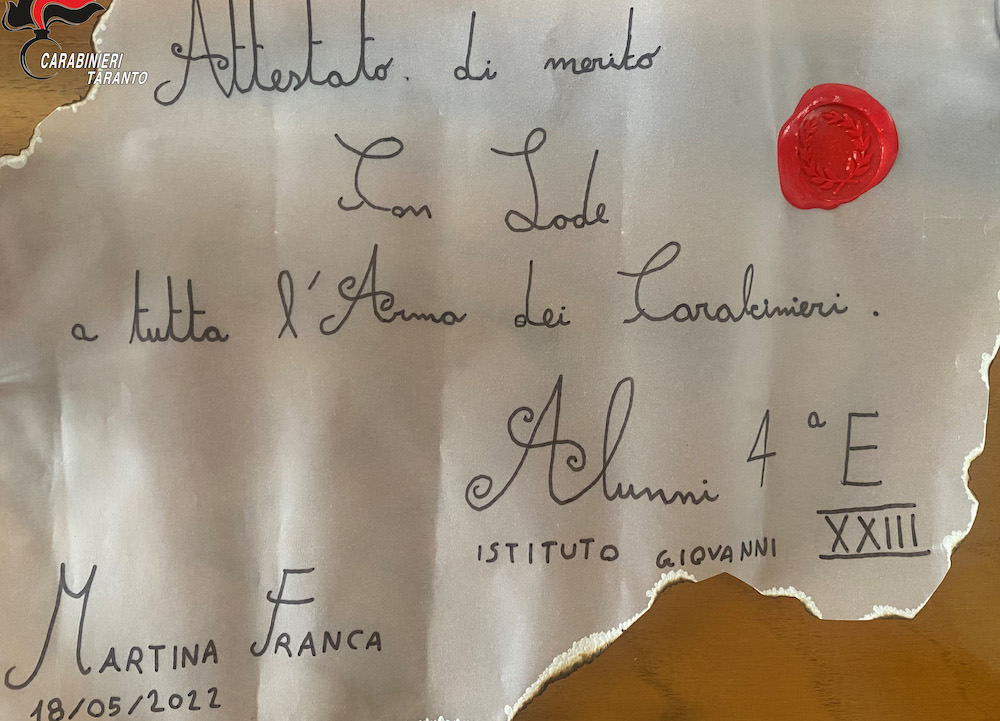 CARABINIERI
TARANTO
Attestato. di merito
Con Lode
a tutta l'Arma dei Carabinieri.
Alunni 4ª E
ISTITUTO GIOVANNI XXIII
MARTINA FRANCA
18/05/2022